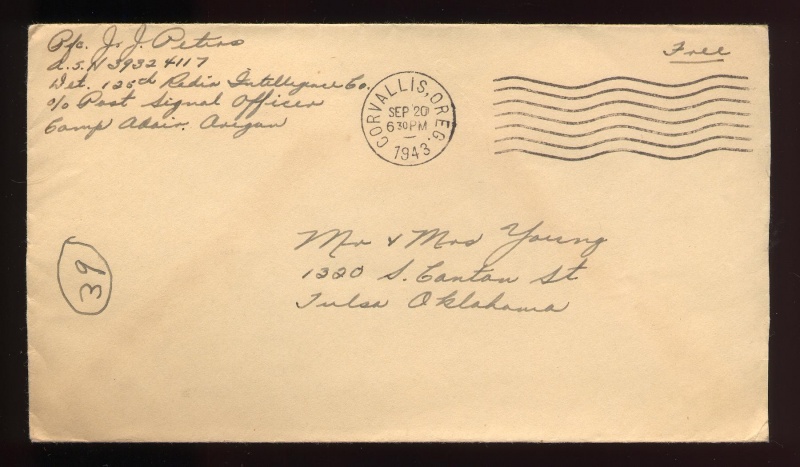 Pfc. Jr J. Peters
A.S.N 3932 4117
Det. 125th Radio Intelligence Co.
c/o Post Signal Officer
Camp Adair. Origan
Free
CORVALLIS, OREG.
SEP 20
6 30 PM
1943
Mr & Mrs Young
1320 S. Canton St
Tulsa Oklahoma
39